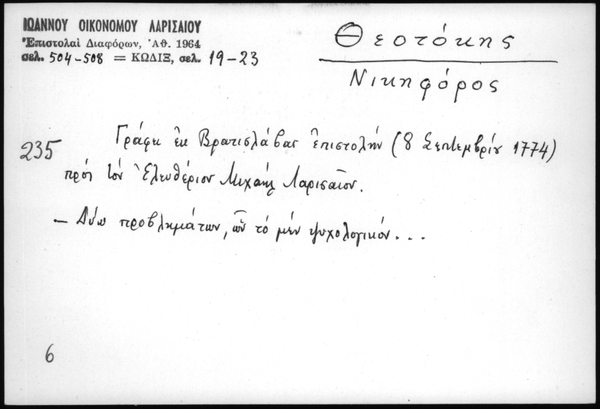 ΙΩΑΝΝΟΥ ΟΙΚΟΝΟΜΟΥ ΛΑΡΙΣΑΙΟΥ
Ἐπιστολαὶ Διαφόρων, Ἀθ. 1964
σελ. 504-508 = ΚΩΔΙΞ, σελ. 19-23
Θεοτόκης
Νικηφόρος
235
Γράφει ἐκ Βρατισλάβας ἐπιστολήν (8 Σεπτεμβρίου 1774)
πρός τόν Ἐλευθέριον Μιχαήλ Λαρισαῖον.
– Λύω προβλημάτων, ὧν τό μέν ψυχολογικόν...
6